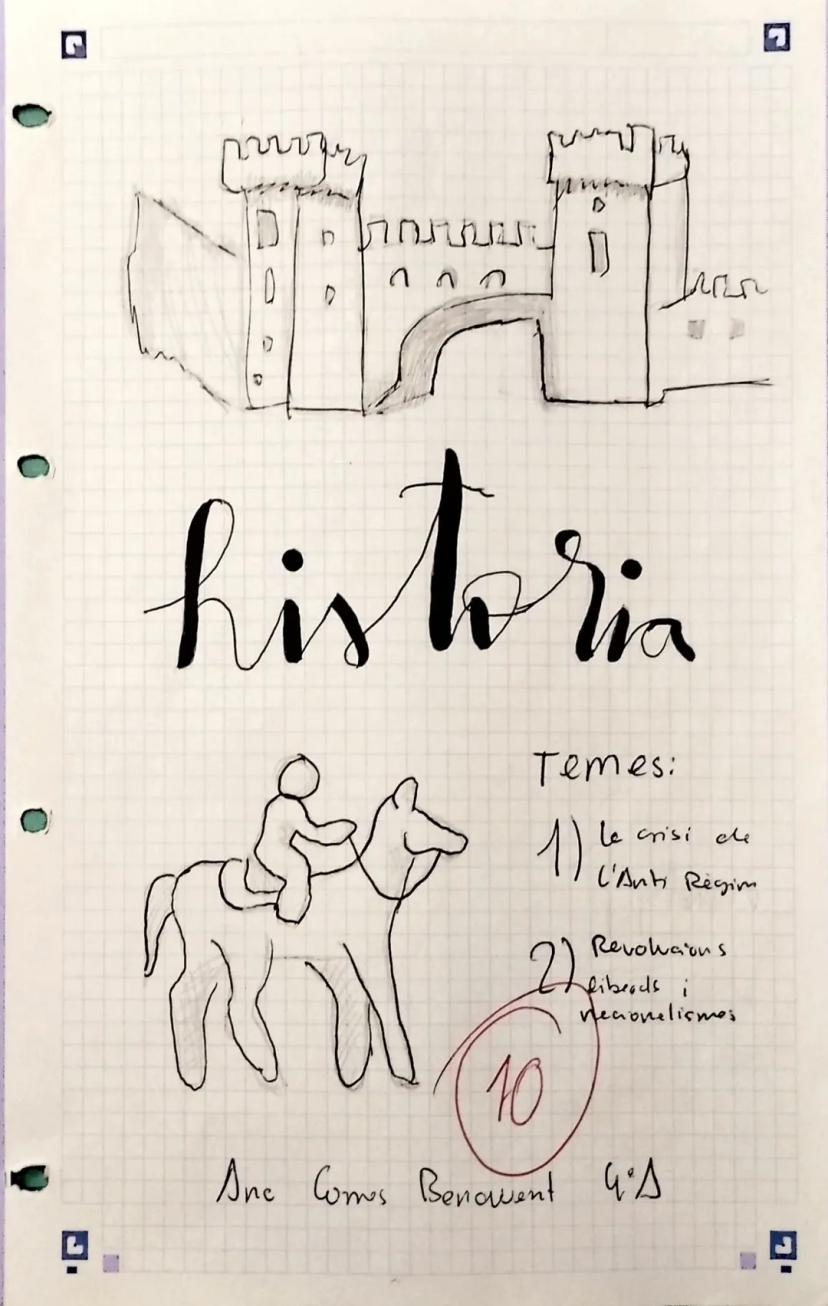 historia
Temes:
1) La crisi de
l'Antic Règim
2) Revolucions
liberals i
nacionalismes
10
Ana Comes Benavent 4ºA